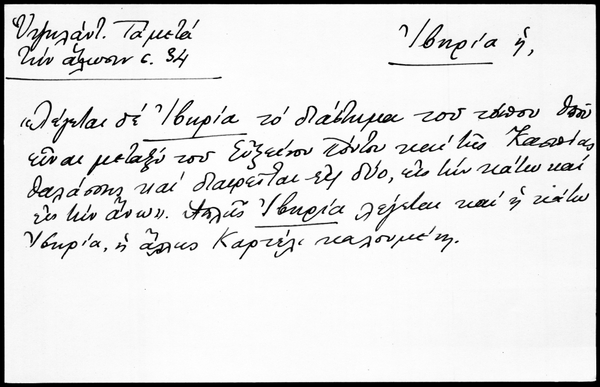 Ὑψηλάντ. Τὰ μετὰ
τὴν ἅλωσιν σ. 34
Ἰβηρία ἡ,
«Λέγεται δέ Ἰβηρία τό διάστημα τοῦ τόπου ὁποῦ
εἶναι μεταξύ τοῦ Εὐξείνου Πόντου καί τῆς Κασπίας
θαλάσσης καί διαιρεῖται εἰς δύο, εἰς τήν κάτω καί
εἰς τήν ἄνω». Ἁπλῶς Ἰβηρία λέγεται καί ἡ κάτω
Ἰβηρία, ἡ ἄλλως Καρτέλι καλουμένη.